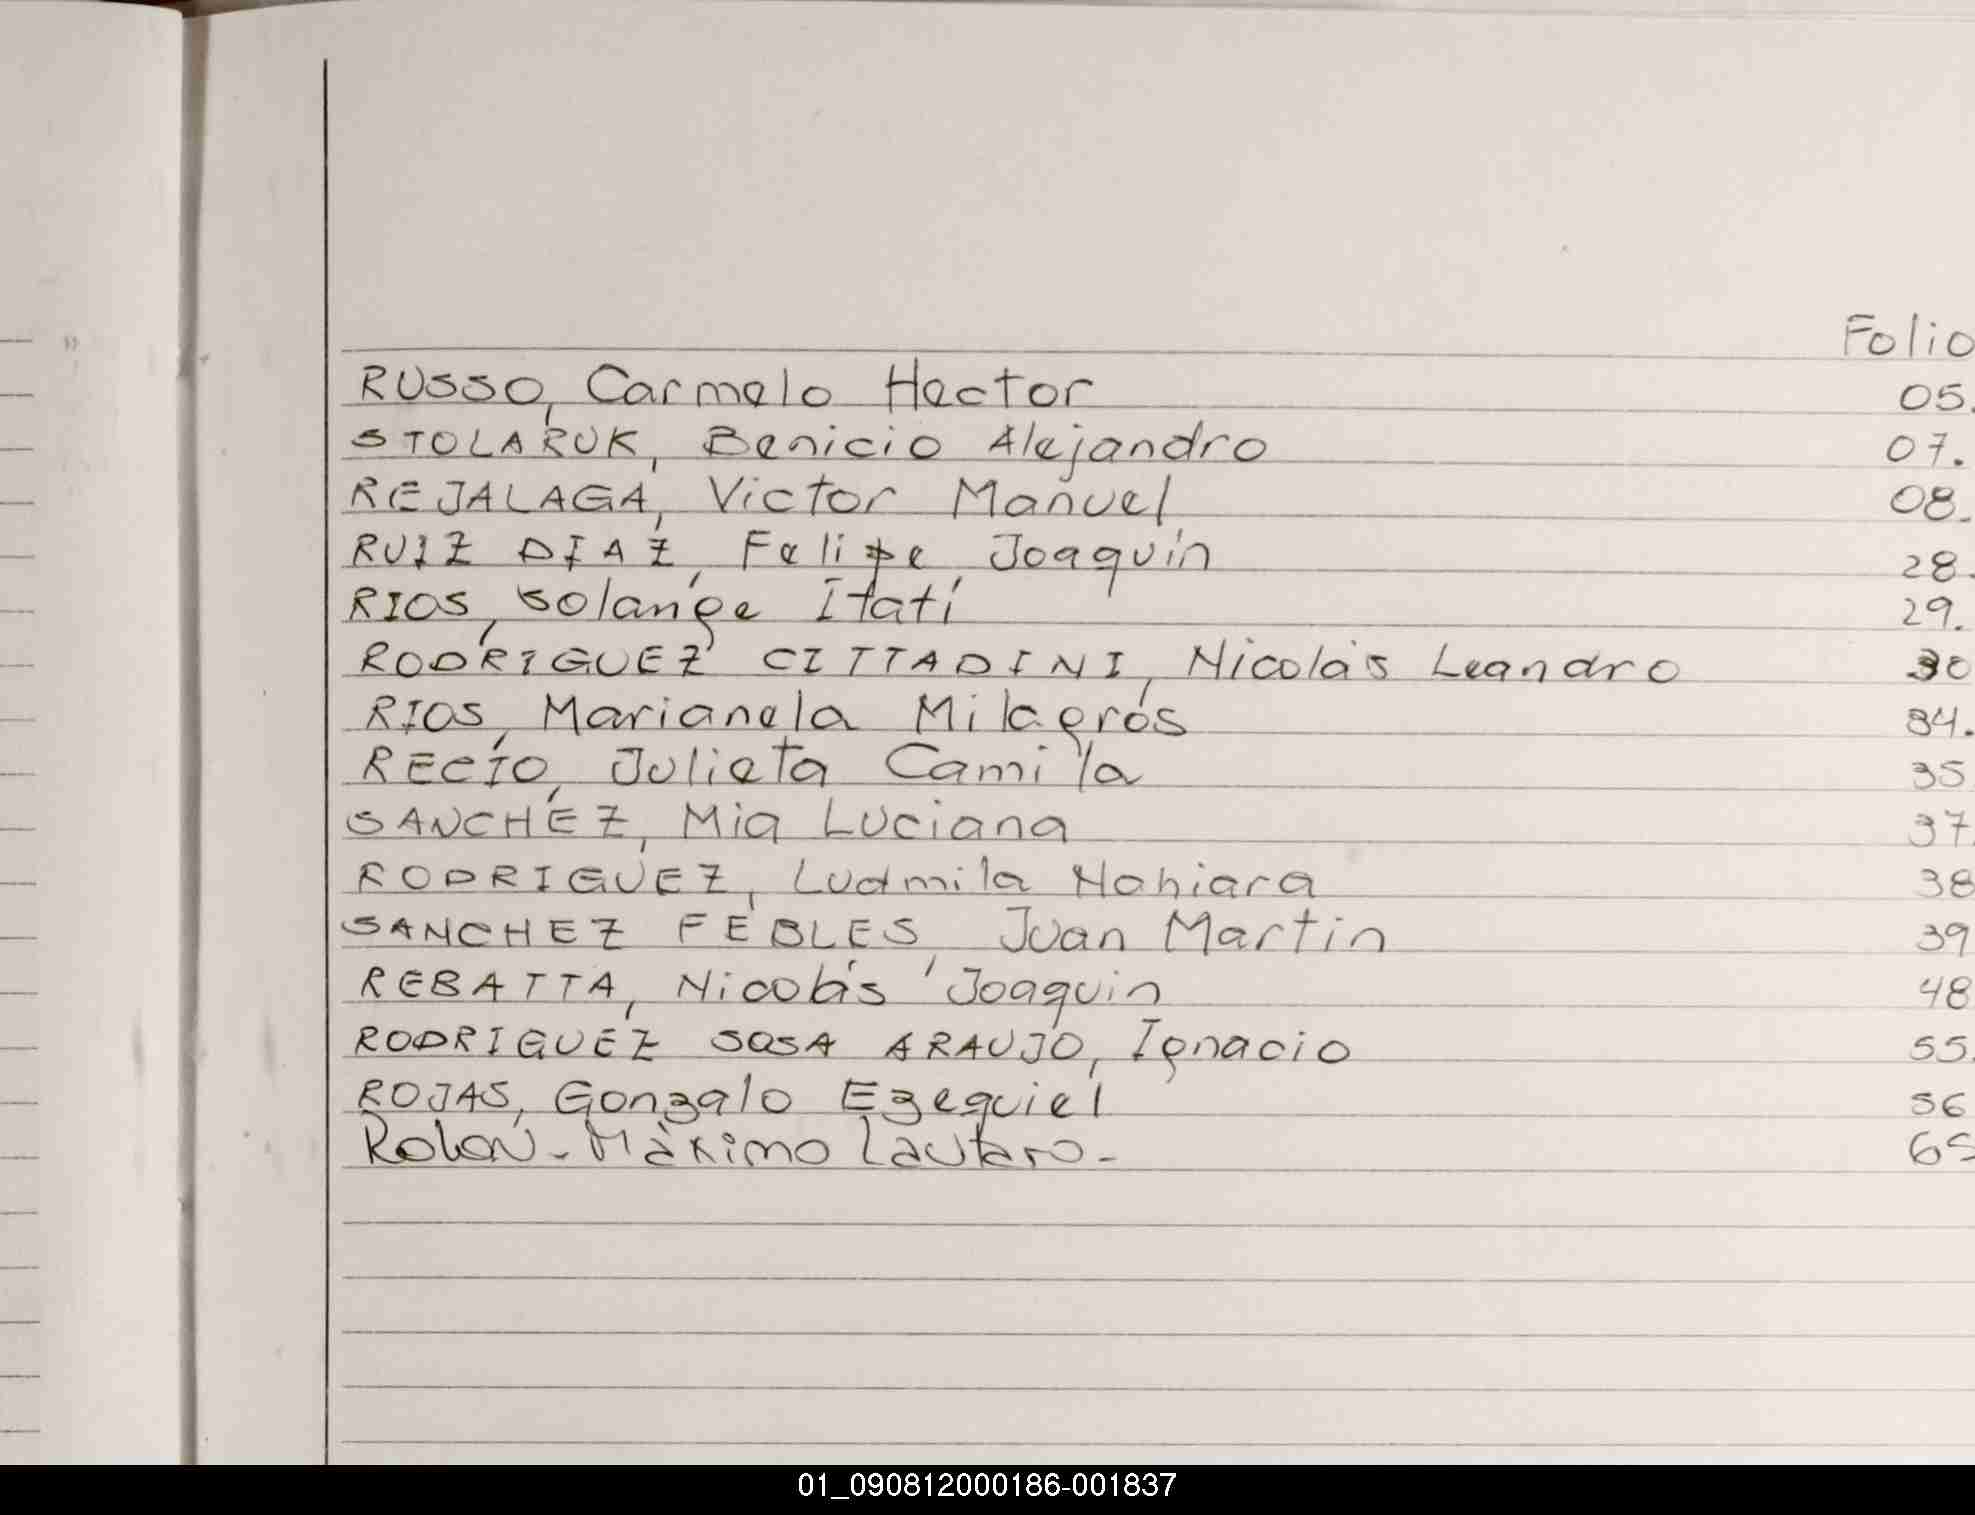 Folio
RUSSO, Carmelo Hector 05.
STOLARUK, Benicio Alejandro 07.
REJALAGA, Victor Manuel 08.
RUIZ DIAZ, Felipe Joaquín 28.
RIOS, Solange Itatí 29.
RODRIGUEZ CITTADINI, Nicolás Leandro 30
RIOS, Marianela Milagros 34.
RECIO, Julieta Camila 35
SANCHEZ, Mia Luciana 37
RODRIGUEZ, Ludmila Nahiara 38
SANCHEZ FEBLES, Juan Martin 39
REBATTA, Nicolás Joaquin 48
RODRIGUEZ SOSA ARAUJO, Ignacio 55.
ROJAS, Gonzalo Ezequiel 56
Rolon - Máximo Lautaro - 65
01_090812000186-001837